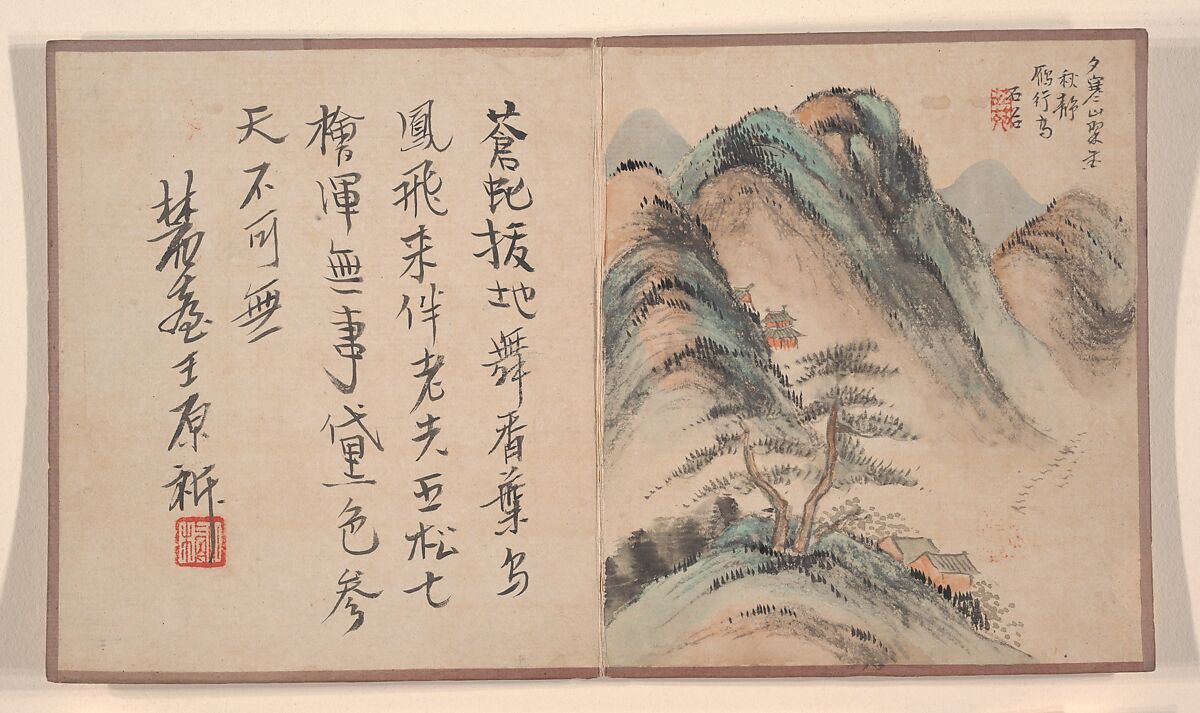 夕寒山翠重
秋静
鴈行高
石谷
蒼虬拔地舞香葉烏
鳳飛来伴老夫五松七
檜渾無事黛色參
天不可無
麓臺王原祁